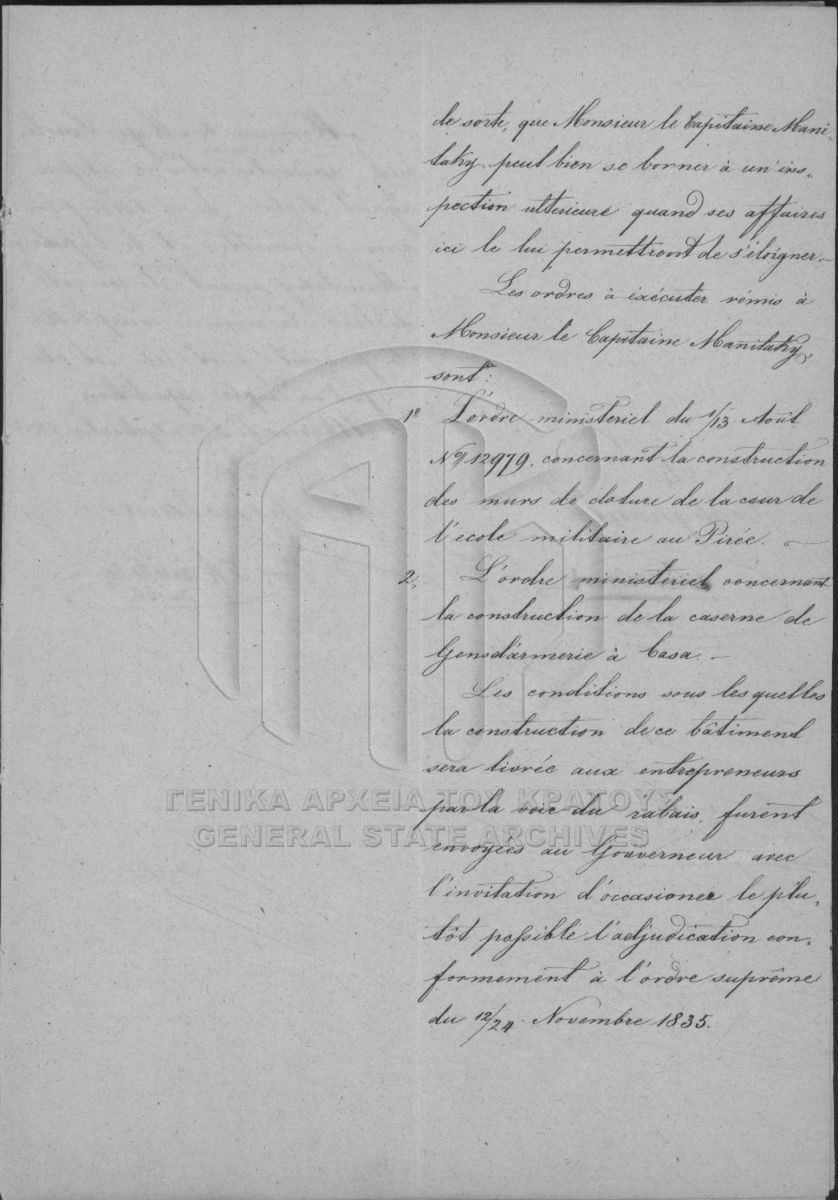 de sorte, que Monsieur le Capitaine Mani-
taky peut bien se borner à un'ins-
pection ulterieure quand ses affaires
ici le lui permettront de s'éloigner.-
Les ordres à éxécuter rémis à
Monsieur le Capitaine Manitaky,
sont:
1º L'ordre ministeriel du 1/13 Août
Nº/12979, concernant la construction
des murs de cloture de la cour de
l'ecole militaire au Pirée. -
2. L'ordre ministeriel concernant
la construction de la caserne de
Gensdármerie à Casa. -
Les conditions sous lesquelles
la construction de ce bâtiment
sera livrée aux entrepreneurs
par la voie du rabais, furent
ΓΕΝΙΚΑ ΑΡΧΕΙΑ ΤΟΥ ΚΡΑΤΟΥΣ
GENERAL STATE ARCHIVES
envoyées au Gouverneur avec
l'invitation d'occasioner le plu-
tôt possible l'adjudication con-
formement à l'ordre suprême
du 12/24 Novembre 1835.